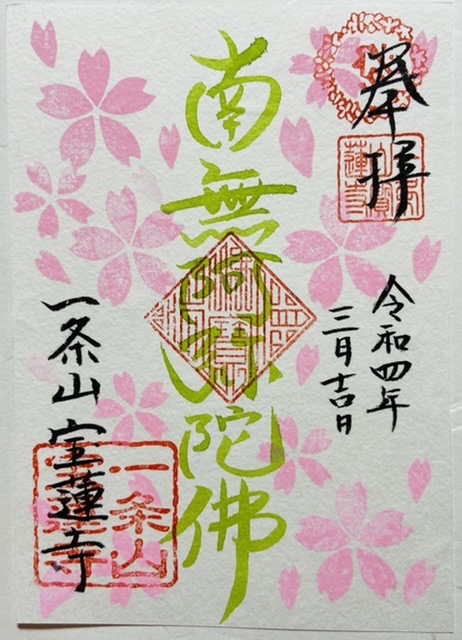 奉拝
令和四年
三月吉日
南無阿弥陀佛
一条山 宝蓮寺
一条山